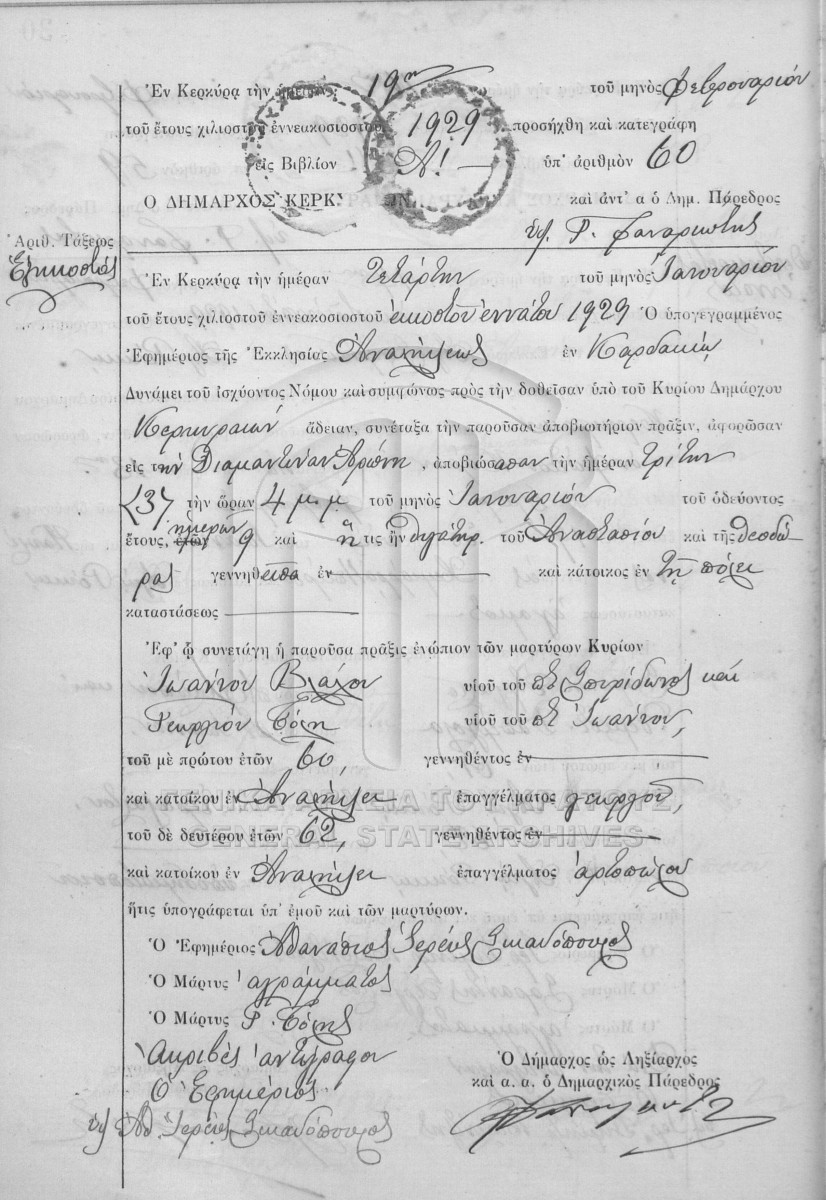 Ἐν Κερκύρᾳ τὴν ἡμέραν 19ην τοῦ μηνὸς Φεβρουαρίου
τοῦ ἔτους χιλιοστοῦ ἐννεακοσιοστοῦ 1929 προσήχθη καὶ κατεγράφη
εἰς Βιβλίον Α! — ὑπ' ἀριθμὸν 60
Ο ΔΗΜΑΡΧΟΣ ΚΕΡΚΥ ΩΝ καὶ ἀντ' α ὁ Δημ. Πάρεδρος
Γ. Φαναριώτης
Ἀριθ. Τάξεως
Εἰκοστός
Ἐν Κερκύρᾳ τὴν ἡμέραν Τετάρτην τοῦ μηνὸς Ἰανουαρίου
τοῦ ἔτους χιλιοστοῦ ἐννεακοσιοστοῦ εἰκοστοῦ ἐννάτου 1929 Ὁ ὑπογεγραμμένος
Ἐφημέριος τῆς Ἐκκλησίας Ἀναλήψεως ἐν Καρδακίῳ
Δυνάμει τοῦ ἰσχύοντος Νόμου καὶ συμφώνως πρὸς τὴν δοθεῖσαν ὑπὸ τοῦ Κυρίου Δημάρχου
Κερκυραίων ἄδειαν, συνέταξα τὴν παροῦσαν ἀποβιωτήριον πρᾶξιν, ἀφορῶσαν
εἰς τὴν Διαμαντίναν , ἀποβιώσασαν τὴν ἡμέραν Τρίτην
τὴν ὥραν 4 μ.μ. τοῦ μηνὸς Ἰανουαρίου τοῦ ὁδεύοντος
ἔτους, ἐτῶν ἡμερῶν 9 καὶ ἥτις ἦν θυγάτηρ. τοῦ Ἀναστασίου καὶ τῆς Θεοδώ
ρας γεννηθεῖσα ἐν καὶ κάτοικος ἐν τῇ πόλει
καταστάσεως
Ἐφ' ᾧ συνετάγη ἡ παροῦσα πρᾶξις ἐνώπιον τῶν μαρτύρων Κυρίων
Ἰωάννου Βλάχου υἱοῦ τοῦ πτ Σπυρίδωνος καὶ
Γεωργίου υἱοῦ τοῦ πτ Ἰωάννου,
τοῦ μὲ πρώτου ἐτῶν 60, γεννηθέντος ἐν
καὶ κατοίκου ἐν Ἀναλήψει ἐπαγγέλματος γεωργοῦ,
τοῦ δὲ δευτέρου ἐτῶν 62, γεννηθέντος ἐν
καὶ κατοίκου ἐν Ἀναλήψει ἐπαγγέλματος ἀρτοπώλου
ἥτις ὑπογράφεται ὑπ' ἐμοῦ καὶ τῶν μαρτύρων.
Ὁ Ἐφημέριος Ἀθανάσιος Ἱερεύς Σκιαδόπουλος
Ὁ Μάρτυς ἀγράμματος
Ὁ Μάρτυς Γ.
Ἀκριβὲς ἀντίγραφον
Ὁ Ἐφημέριος
Ἀθ. Ἱερεύς Σκιαδόπουλος
Ὁ Δήμαρχος ὡς Ληξίαρχος
καὶ α. α. ὁ Δημαρχικὸς Πάρεδρος
ΓΕΝΙΚΑ ΑΡΧΕΙΑ ΤΟΥ ΚΡΑΤΟΥΣ
GENERAL STATE ARCHIVES